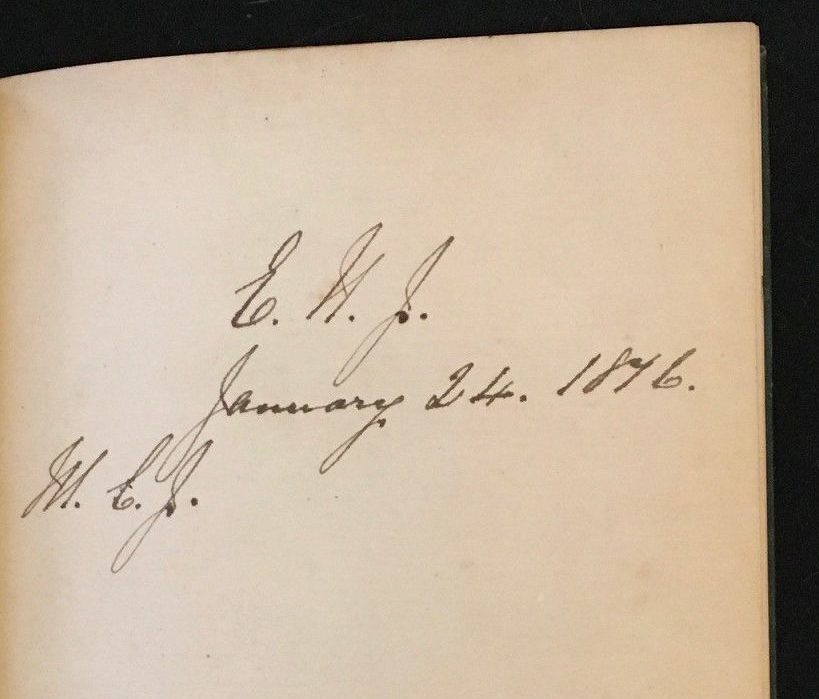 E. H. J.
January 24. 1876.
M. C. J.